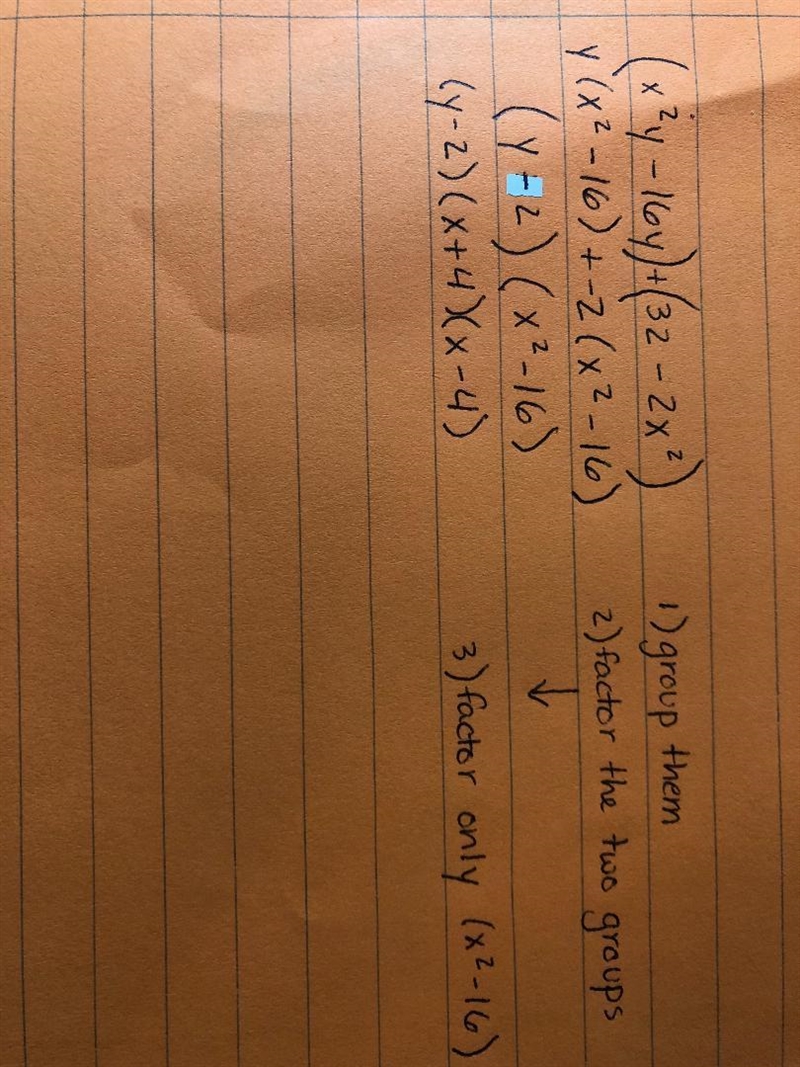 (x²y - 16y) + (32 - 2x²) 1) group them
y(x² - 16) + -2(x² - 16) 2) factor the two groups
(y - 2)(x² - 16) ↓
(y - 2)(x + 4)(x - 4) 3) factor only (x² - 16)